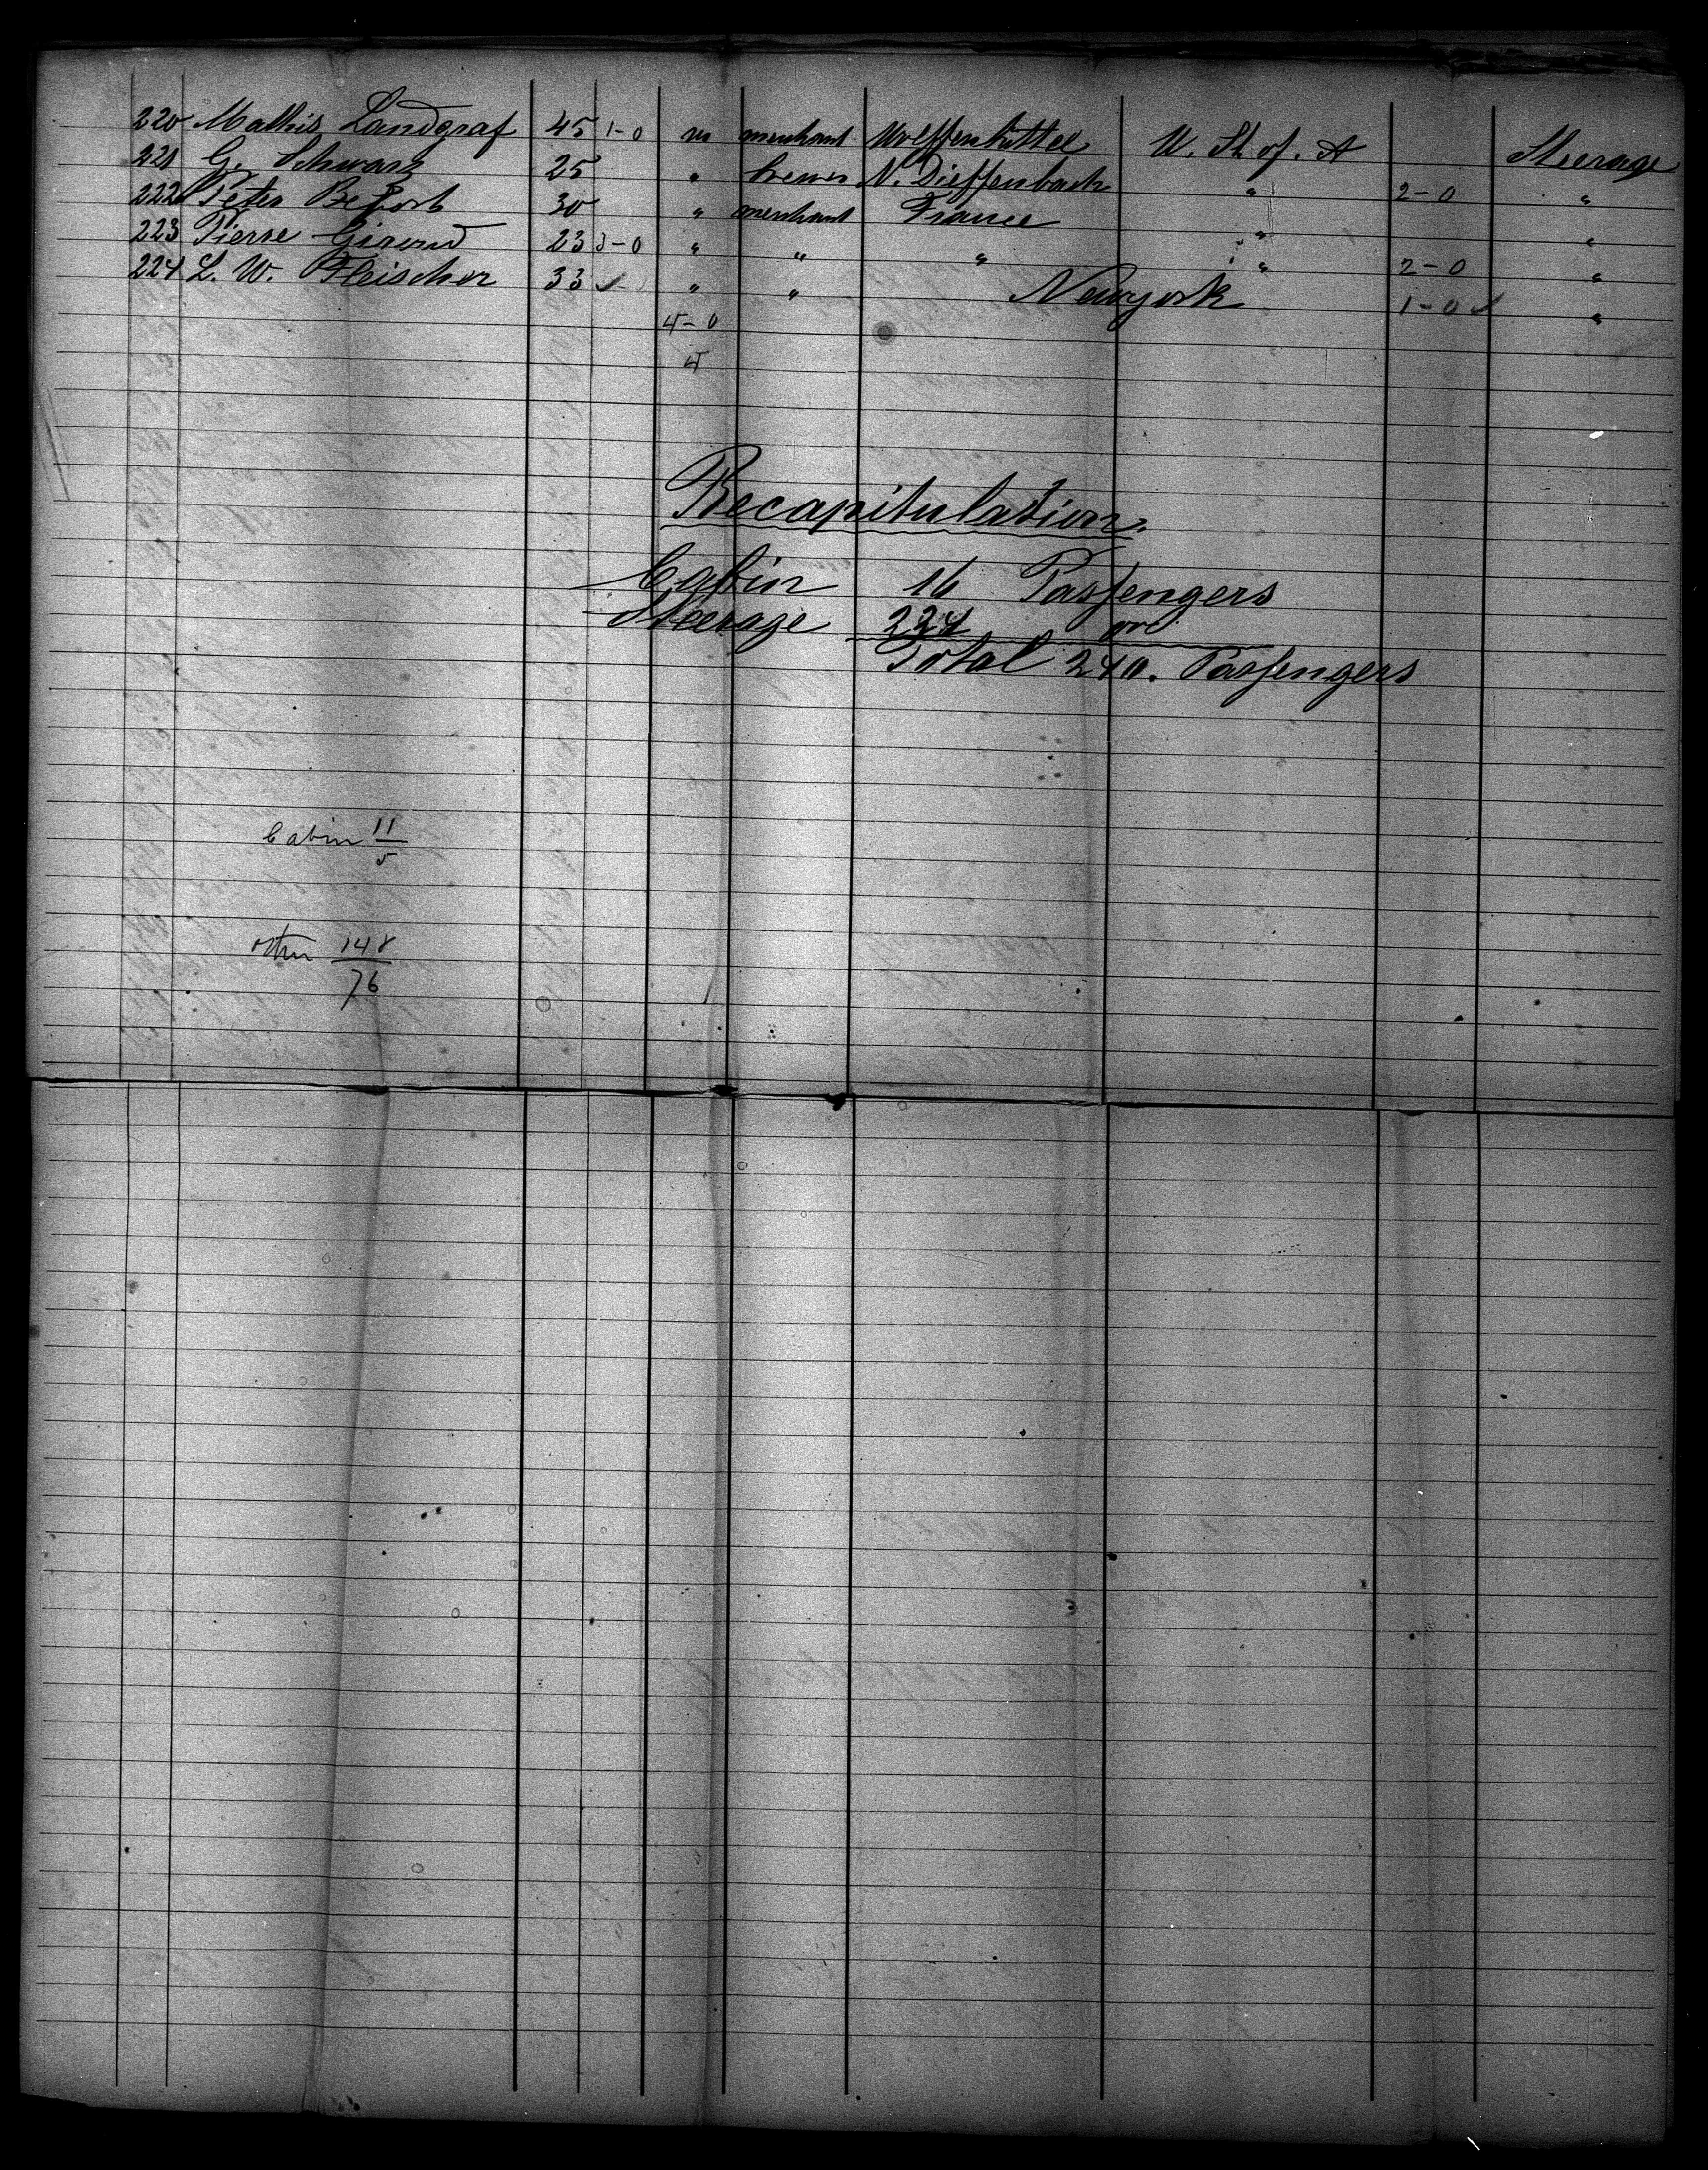 220 Mathis Landgraf 45 1-0 m merchant Wolffenbüttel U. St. of. A Steerage
221 G. Schwarz 25 " brewer N. Dieffenbach " 2-0 "
222 Peter 30 " merchant France " "
223 Pierre Giroud 23 3-0 " " " " 2-0 "
224 L. W. Fleischer 33 " " Newyork 1-0 "
4-0
4
Recapitulation.
Cabin 16 Passengers
Steerage 224
Total 240. Passengers
Cabin 11
5
other 148
76